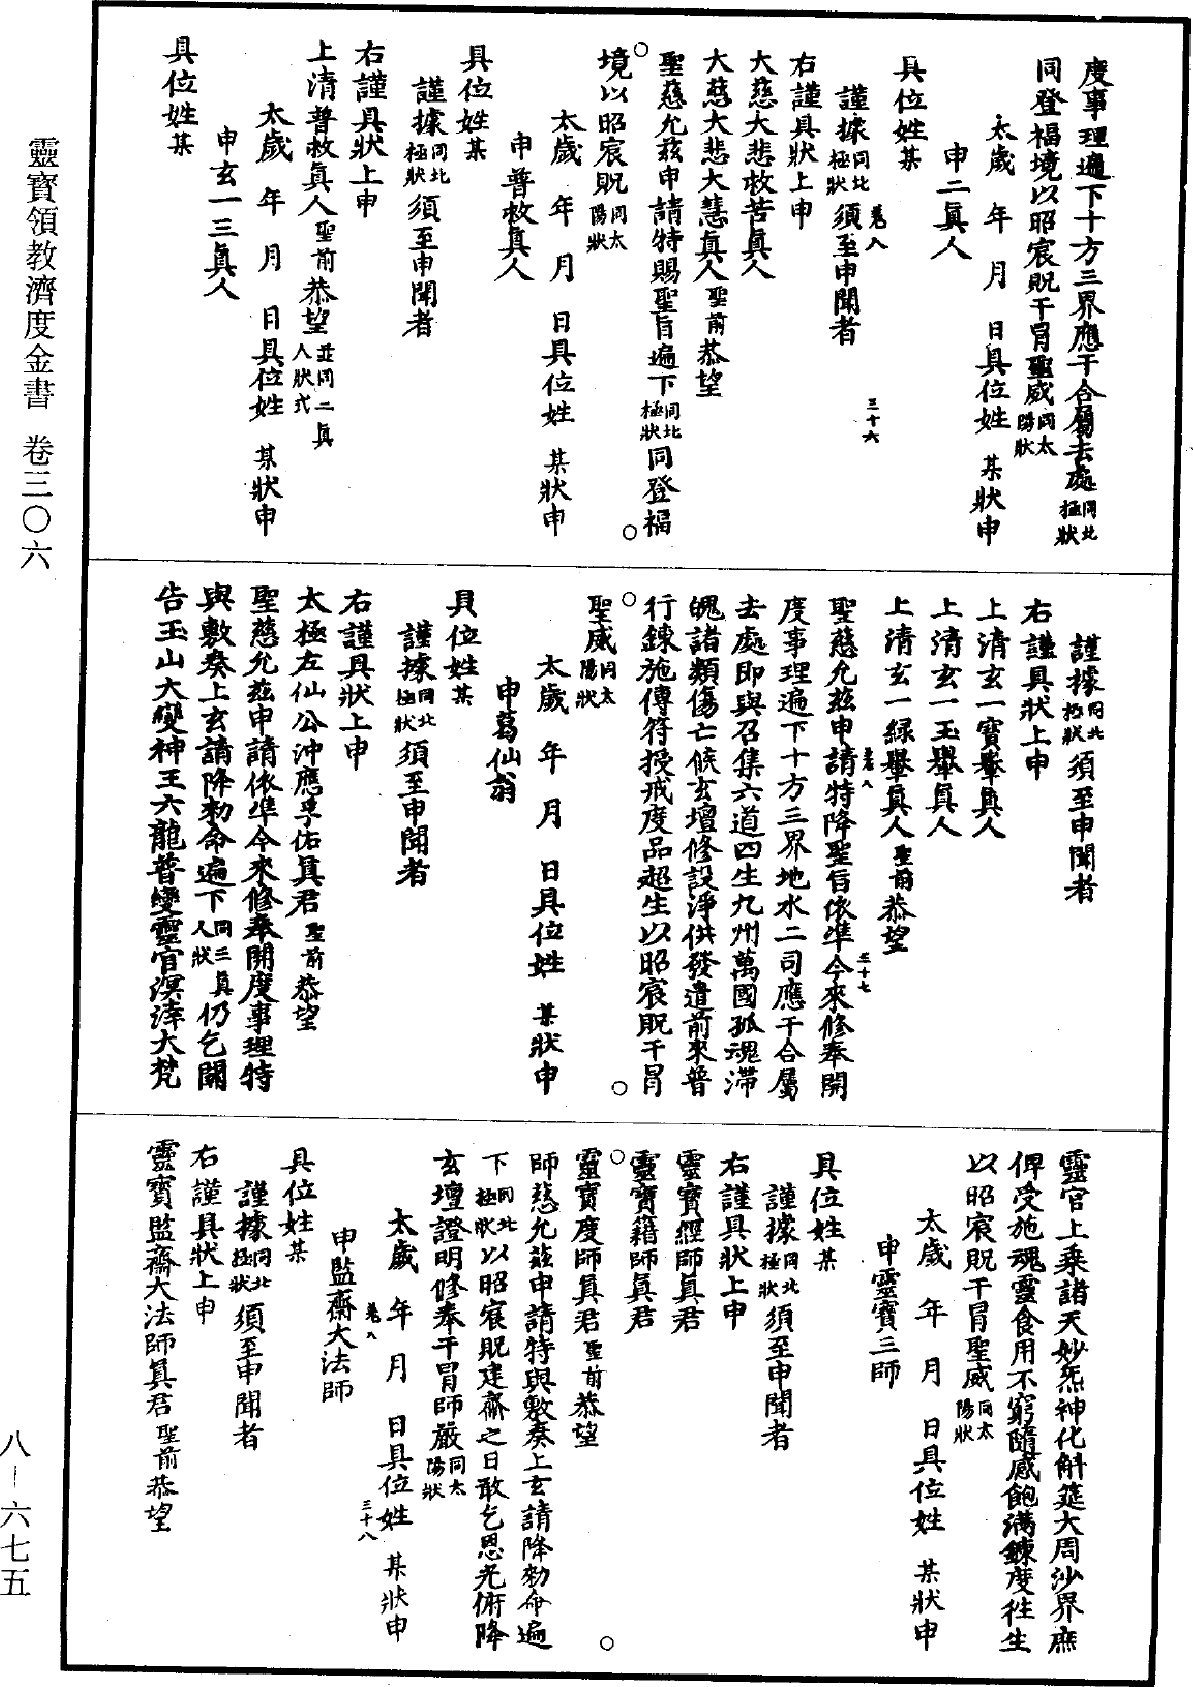 度事理遍下十方三界應干合屬去處同北極狀
同登福境以昭宸貺干冒聖威同太陽狀
太歲 年 月 日具位姓 某狀申
申二眞人
具位姓某
謹據同北極狀須至申聞者
卷八 三十六
右謹具狀上申
大慈大悲救苦眞人
大慈大悲大慧眞人聖前恭望
聖慈允茲申請特賜聖旨遍下同北極狀同登福
境以昭宸貺同太陽狀
太歲 年 月 日具位姓 某狀申
申普救眞人
具位姓某
謹據同北極狀須至申聞者
右謹具狀上申
上清普救眞人聖前恭望並同二眞人狀式
太歲 年 月 日具位姓 某狀申
申玄一三眞人
具位姓某
謹據同北極狀須至申聞者
右謹具狀上申
上清玄一寶轝眞人
上清玄一玉轝眞人
上清玄一綠轝眞人聖前恭望
卷八 三十七
聖慈允茲申請特降聖旨依準今來修奉開
度事理遍下十方三界地水二司應干合屬
去處即與召集六道四生九州萬國孤魂滯
魄諸類傷亡候玄壇修設淨供發遣前來普
行鍊施傳符授戒度品超生以昭宸貺干冒
聖威同太陽狀
太歲 年 月 日具位姓 某狀申
申葛仙翁
具位姓某
謹據同北極狀須至申聞者
右謹具狀上申
太極左仙公沖應孚佑眞君聖前恭望
聖慈允茲申請依準今來修奉開度事理特
與敷奏上玄請降勑命遍下同三眞人狀仍乞關
告玉山大變神王六龍普變靈官溟涬大梵
靈官上乘諸天妙炁神化斛筵大周沙界庶
俾受施魂靈食用不窮隨感飽滿鍊度徃生
以昭宸貺干冒聖威同太陽狀
太歲 年 月 日具位姓 某狀申
申靈寶三師
具位姓某
謹據同北極狀須至申聞者
右謹具狀上申
靈寶經師眞君
靈寶籍師眞君
靈寶度師眞君聖前恭望
師慈允茲申請特與敷奏上玄請降勑命遍
下同北極狀以昭宸貺建齋之日敢乞恩光俯降
玄壇證明修奉干冒師嚴同太陽狀
太歲 年 月 日具位姓 某狀申
卷八 三十八
申監齋大法師
具位姓某
謹據同北極狀須至申聞者
右謹具狀上申
靈寶監齋大法師眞君聖前恭望
靈寶領教濟度金書 卷三〇六
八－六七五